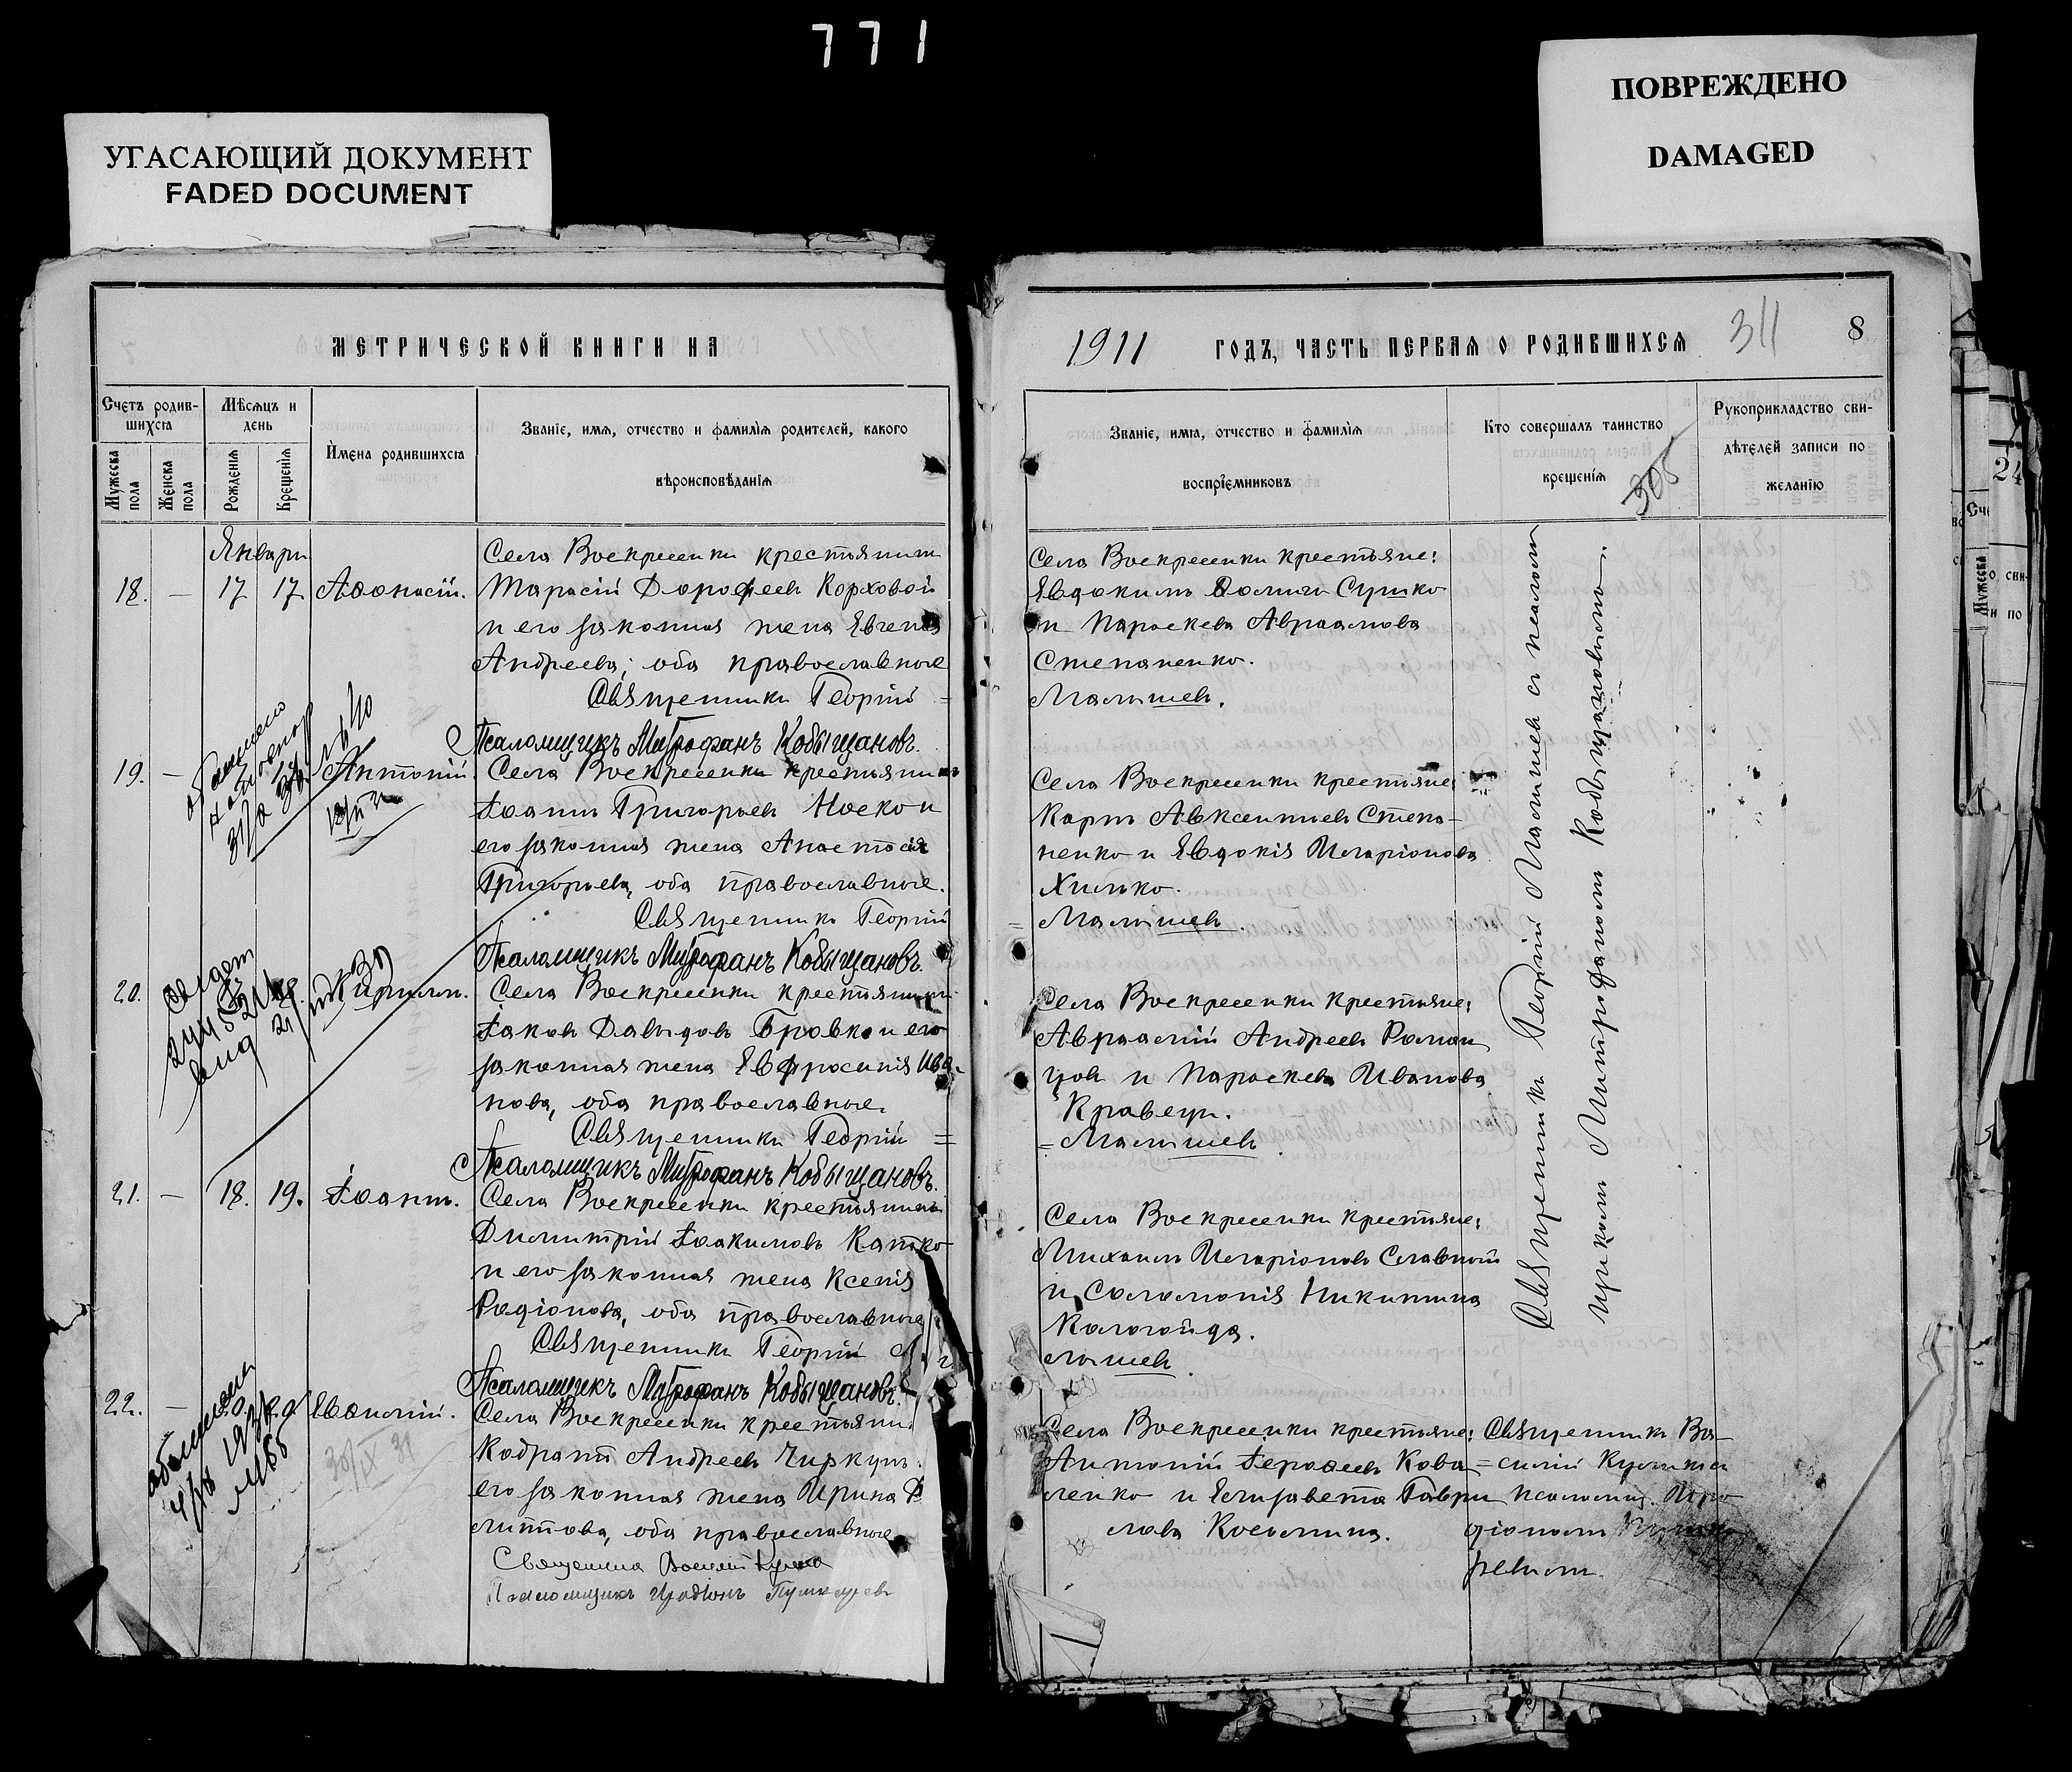 771
УГАСАЮЩИЙ ДОКУМЕНТ
FADED DOCUMENT
ПОВРЕЖДЕНО
DAMAGED
МЕТРИЧЕСКОЙ КНИГИ НА
Счетъ родив-
шихся
Мѣсяцъ и
день
Имена родившихся
Званіе, имя, отчество и фамилія родителей, какого
вѣроисповѣданія
Мужеска
пола
Женска
пола
Рожденія
Крещенія
Январи
18. — 17 17 Аѳонасій.
Села Воскресенки крестьянин
Тарасій Дорофеевъ Корховой
и его законная жена Евгенія
Андреева, оба православные
Священникъ Георгій =
Псаломщикъ Митрофанъ Кобыщановъ.
19. — Антоній.
Села Воскресенки крестьянинъ
Іоаннъ Григорьевъ Носко и
его законная жена Анастасія
Григорьева, оба православные.
Священникъ Георгій
Псаломщикъ Митрофанъ Кобыщановъ.
20. Кириллъ.
Села Воскресенки крестьянинъ
Іаковъ Давидовъ Бровко и его
законная жена Евфросинія Ива-
нова, оба православные.
Священникъ Георгій =
Псаломщикъ Митрофанъ Кобыщановъ.
21. — 18. 19. Іоаннъ.
Села Воскресенки крестьянинъ
Димитрій Іоакимовъ Катко
и его законная жена Ксенія
Родіонова, оба православные
Священникъ Георгій
Псаломщикъ Митрофанъ Кобыщановъ.
22. — Евѳимій.
Села Воскресенки крестьянин
Кодратъ Андреевъ Чиркунъ
его законная жена Ирина
литова, оба православные
Псаломщикъ Иродіонъ Пушкаревъ
1911 ГОДЪ, ЧАСТЬ ПЕРВАЯ О РОДИВШИХСЯ 311 8
Званіе, имя, отчество и фамилія
воспріемниковъ
Кто совершалъ таинство
крещенія
305
Рукоприкладство сви-
дѣтелей записи по
желанію
Села Воскресенки крестьяне:
Евдокимъ Сушко
и Параскева Авраамова
Степаненко.
Малышевъ.
Села Воскресенки крестьяне:
Карпъ Авксентіевъ Степа-
ненко и Евдокія Иларіонова
Хилько.
= Малышевъ.
Села Воскресенки крестьяне:
Авраамій Андреевъ Роман
цов и Параскева Иванова
Кравецъ.
= Малышевъ.
Села Воскресенки крестьяне:
Михаилъ Иларіоновъ Славный
и Соломонія Никитина
Кологойда.
лышевъ.
Села Воскресенки крестьяне:
Антоній Іероѳеевъ Кова=
ленко и Елизавета Гаври
лова Косьмина.
Священникъ Георгій Малышевъ съ псалом
щикомъ Митрофаномъ Кобыщановымъ.
Священникъ Ва-
силій
псаломщ. Иро
діономъ
ревымъ.
24